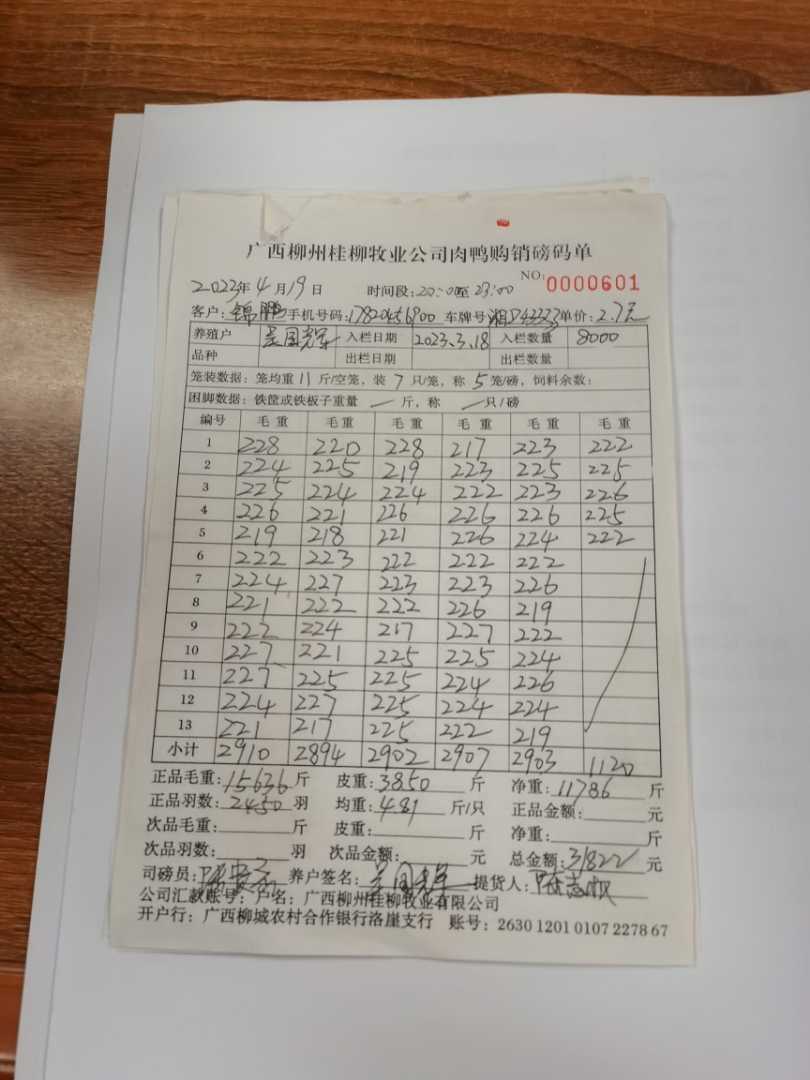 广西柳州桂柳牧业公司肉鸭购销磅码单
NO: 0000601
2023年4月19日 时间段:20:00至23:00
客户:锦鹏 手机号码:17820456900 车牌号 单价:2.7元
养殖户 吴国 入栏日期 2023.3.18 入栏数量 8000
品种 出栏日期 出栏数量
笼装数据:笼均重11斤/空笼,装7只/笼,称5笼/磅,饲料余数:
困脚数据:铁筐或铁板子重量 — 斤,称 — 只/磅
编号 毛重 毛重 毛重 毛重 毛重 毛重
1 228 220 228 217 223 222
2 224 225 219 223 225 225
3 225 224 224 222 223 226
4 226 221 226 226 226 225
5 219 218 221 226 224 222
6 222 223 222 222 222
7 224 227 223 223 226
8 221 222 222 226 219
9 222 224 217 227 222
10 227 221 225 225 224
11 227 225 225 224 226
12 224 227 225 224 224
13 221 217 225 222 219
小计 2910 2894 2902 2907 2903 1120
正品毛重:15636斤 皮重:3850斤 净重:11786斤
正品羽数:2450羽 均重:4.81斤/只 正品金额: 元
次品毛重: 斤 皮重: 斤 净重: 斤
次品羽数: 羽 次品金额: 元 总金额:31822元
司磅员: 养户签名:吴国 提货人:
公司汇款账号:户名:广西柳州桂柳牧业有限公司
开户行:广西柳城农村合作银行洛崖支行 账号:2630 1201 0107 2278 67